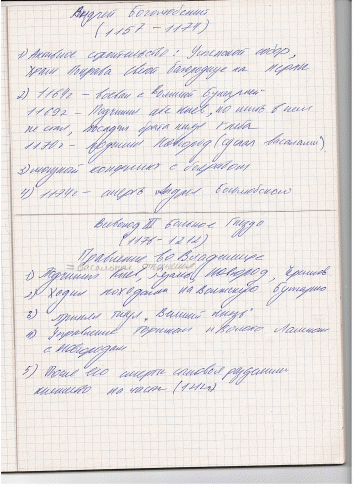 Андрей Боголюбский
(1157 – 1174)
1) Активное строительство: Успенский собор,
Храм Покрова Святой Богородице на Нерли
2) 1164г – воевал с Волжской Булгарией
1169г – Подчинил себе Киев, но княж в нем
не стал, посадил брата князя Глеба
1170г – подчинил Новгород (сделал вассалами)
3) мощный конфликт с боярами
4) 1174г – смерть Андрея Боголюбского
Всеволод III Большое Гнездо
(1176 – 1212)
Правление во Владимире
1) Подчинил Киев, Рязань, Новгород,
2) Ходил походами на Волжскую Булгарию
3) принял титул „Великий князь"
4) Управление Торжком и Ламским
с Новгородом
5) После его смерти сыновья разделили
княжество на части (1212г)